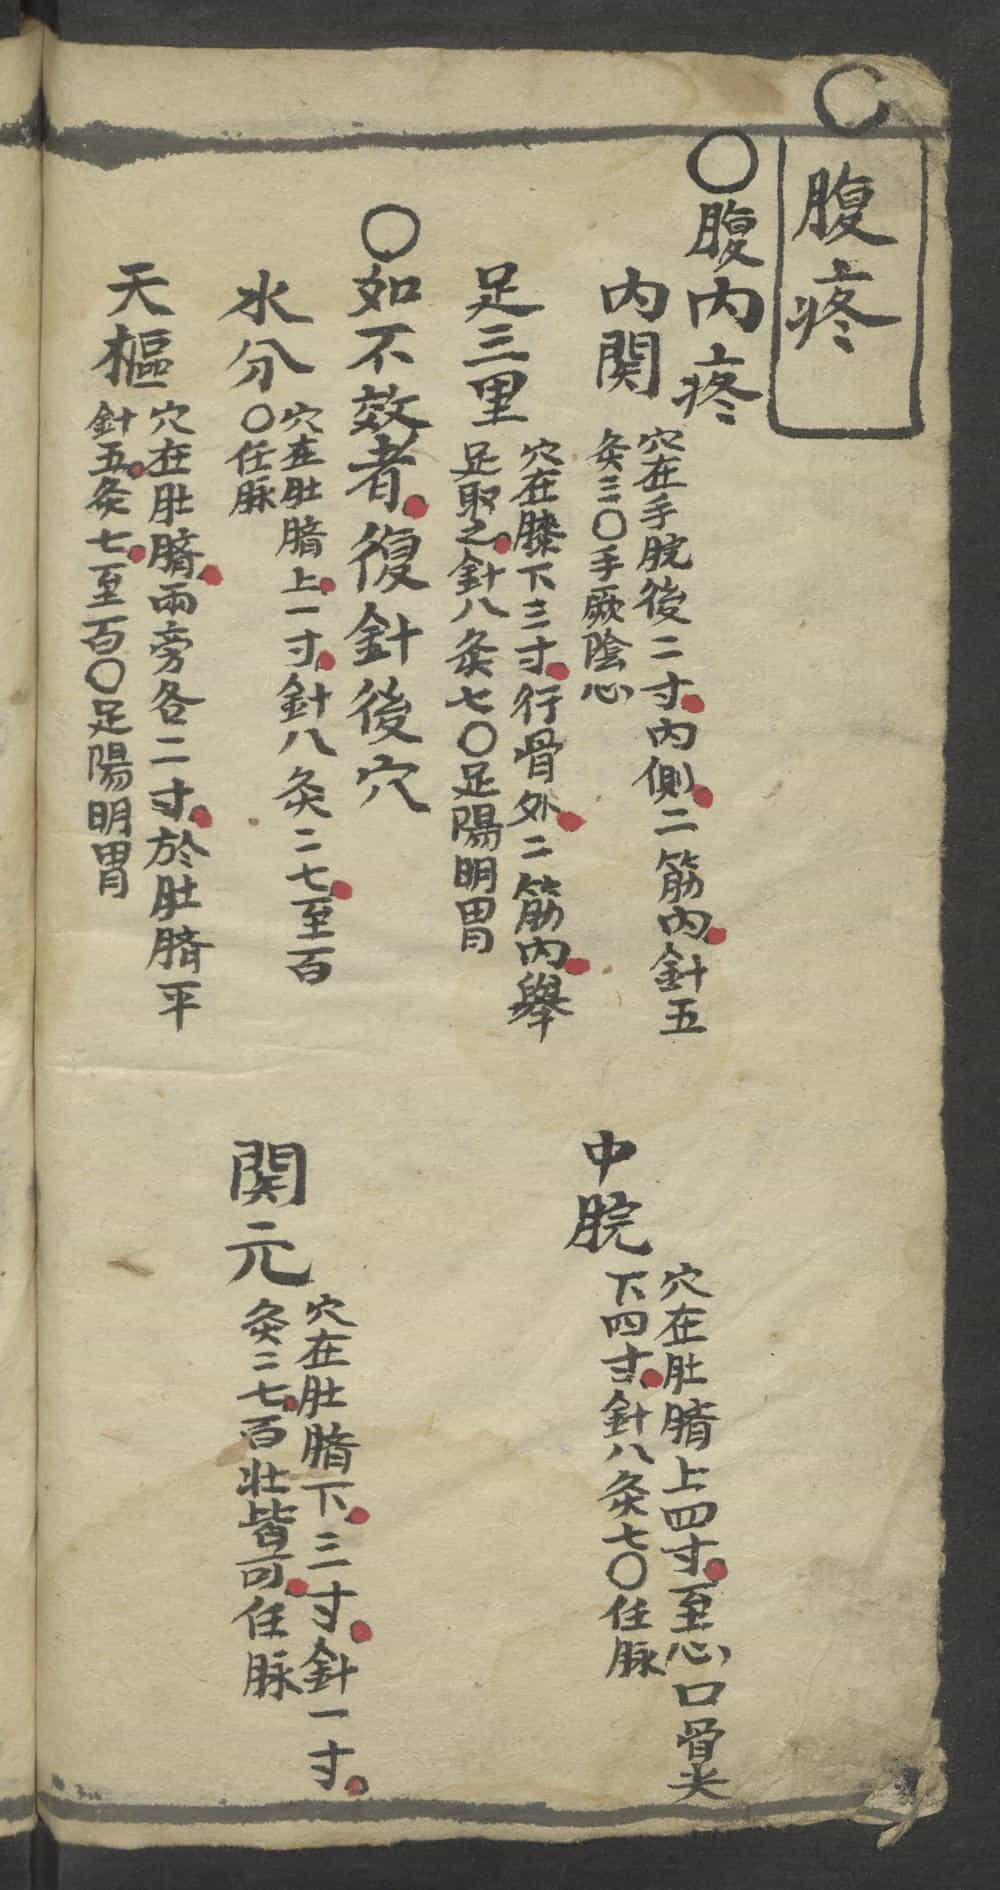 腹疼
〇腹內疼
內関
穴在手腕後二寸內側二筋內針五
灸三〇手厥陰心
中脘
穴在肚臍上四寸至心口骨尖
下四寸針八灸七〇任脉
足三里
穴在膝下三寸行骨外二筋內舉
足取之針八灸七〇足陽明胃
〇如不效者復針後穴
水分
穴在肚臍上一寸針八灸二七至百
〇任脉
関元
穴在肚臍下三寸針一寸
灸二七百壯皆可任脉
天樞
穴在肚臍兩旁各二寸於肚臍平
針五灸七至百〇足陽明胃